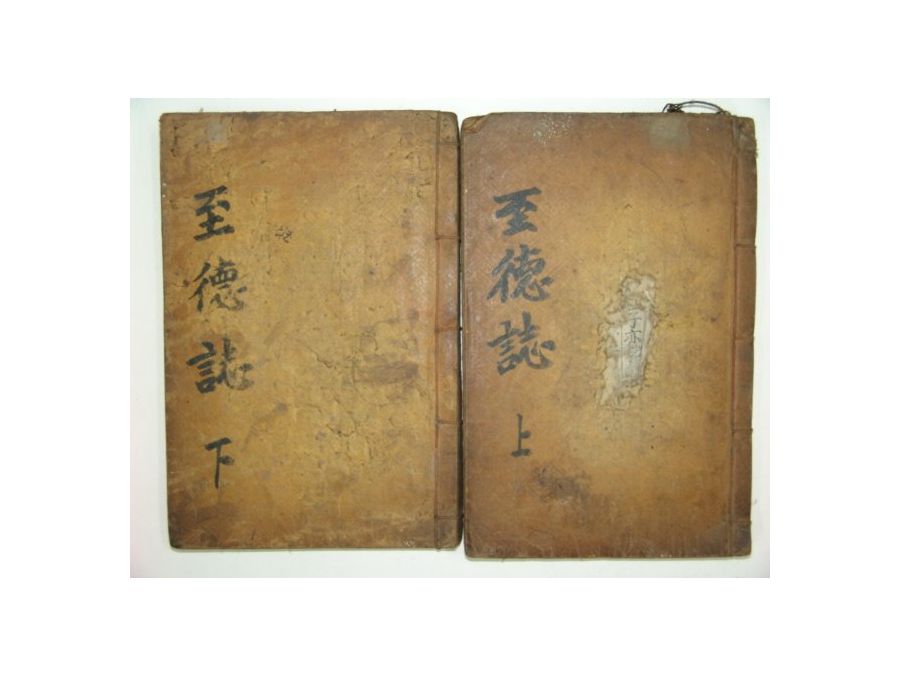 至德誌
上
至德誌
下